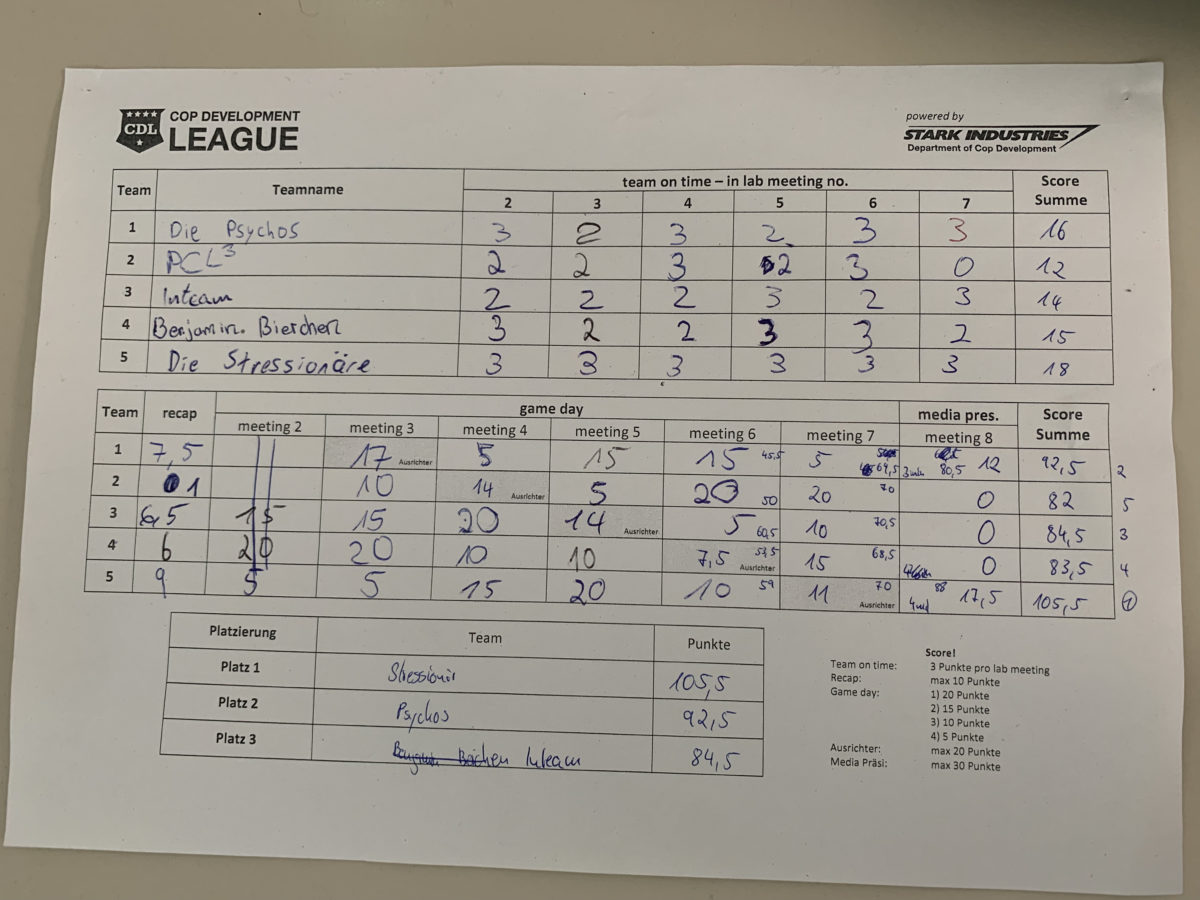 COP DEVELOPMENT
CDL LEAGUE
powered by
STARK INDUSTRIES
Department of Cop Development
Team Teamname team on time – in lab meeting no. Score Summe
2 3 4 5 6 7
1 Die Psychos 3 2 3 2 3 3 16
2 PCL³ 2 2 3 2 3 0 12
3 Inteam 2 2 2 3 2 3 14
4 Benjamin. Bierchen 3 2 2 3 3 2 15
5 Die Stressionäre 3 3 3 3 3 3 18
Team recap game day media pres. Score Summe
meeting 2 meeting 3 meeting 4 meeting 5 meeting 6 meeting 7 meeting 8
1 7,5 17 Ausrichter 5 15 15 45,5 5 69,5 3 min 80,5 12 92,5 2
2 1 10 14 Ausrichter 5 20 50 20 70 0 82 5
3 6,5 15 15 20 14 Ausrichter 5 60,5 10 70,5 0 84,5 3
4 6 20 20 10 10 7,5 53,5 Ausrichter 15 68,5 0 83,5 4
5 9 5 5 15 20 10 59 11 70 Ausrichter 88 17,5 105,5 1
Platzierung Team Punkte
Platz 1 Stressionär 105,5
Platz 2 Psychos 92,5
Platz 3 Inteam 84,5
Score!
Team on time: 3 Punkte pro lab meeting
Recap: max 10 Punkte
Game day: 1) 20 Punkte
2) 15 Punkte
3) 10 Punkte
4) 5 Punkte
Ausrichter: max 20 Punkte
Media Präsi: max 30 Punkte